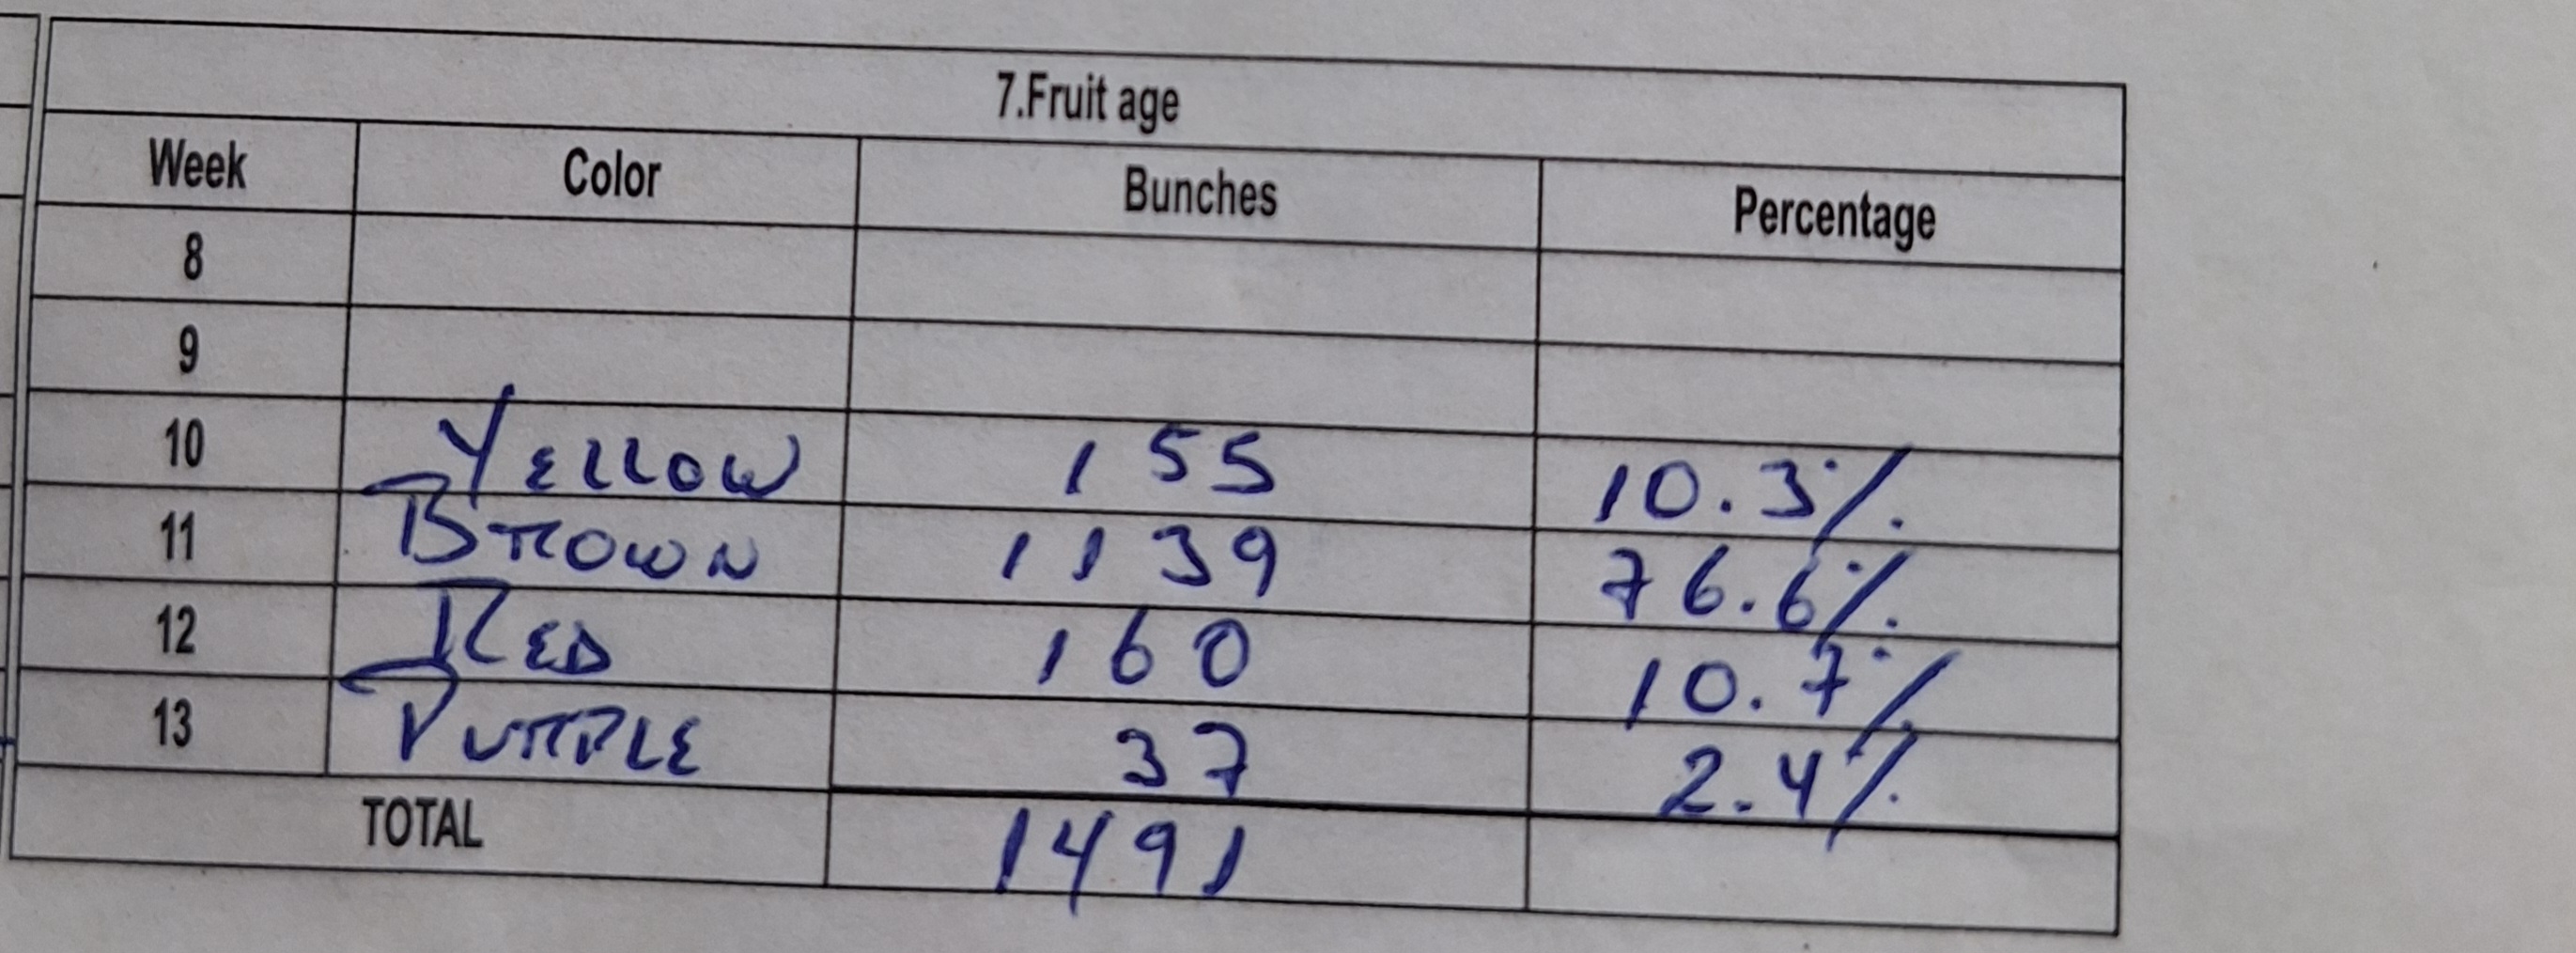 7.Fruit age
Week Color Bunches Percentage
8
9
10 YELLOW 155 10.3%
11 BROWN 1139 76.6%
12 RED 160 10.7%
13 PURPLE 37 2.4%
TOTAL 1491